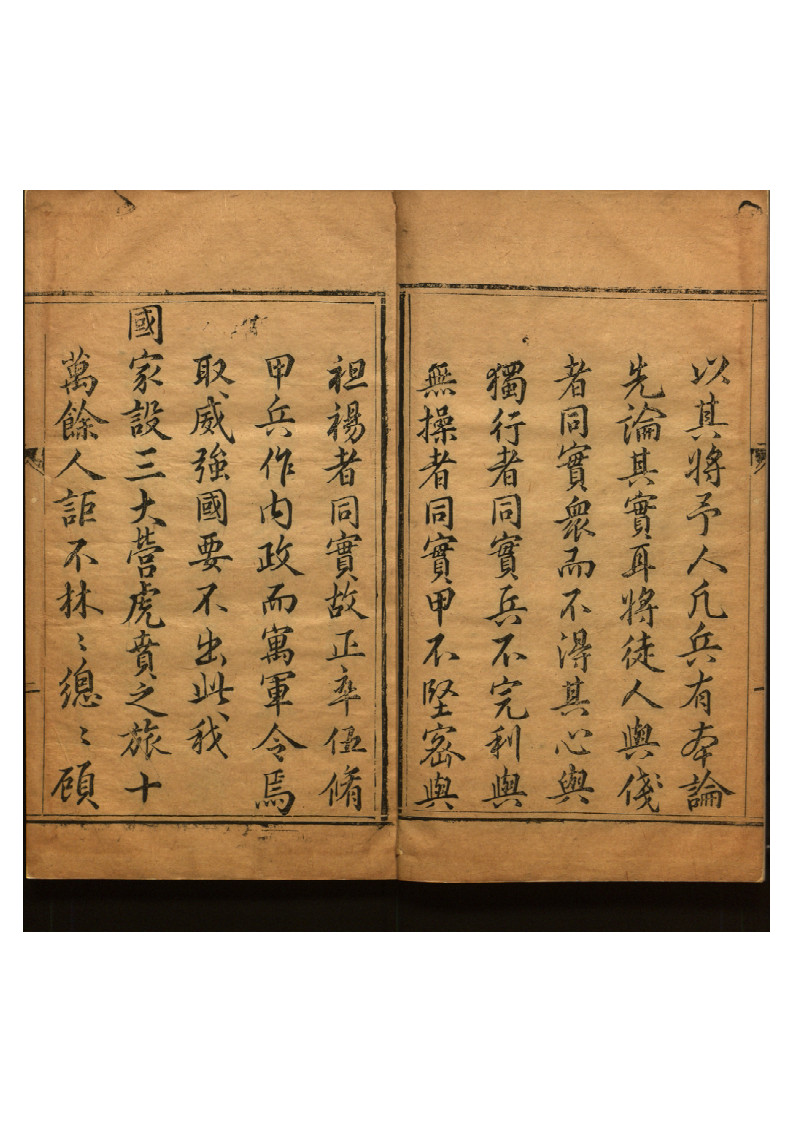 以其將予人凡兵有夲論
先論其實耳將徒人與俴
者同實衆而不得其心與
獨行者同實兵不完利與
無操者同實甲不堅宻與
袒裼者同實故正卒伍脩
甲兵作內政而寓軍令焉
取威強國要不出此我
國家設三大營虎賁之旅十
萬餘人詎不林〻總〻顧
一
二